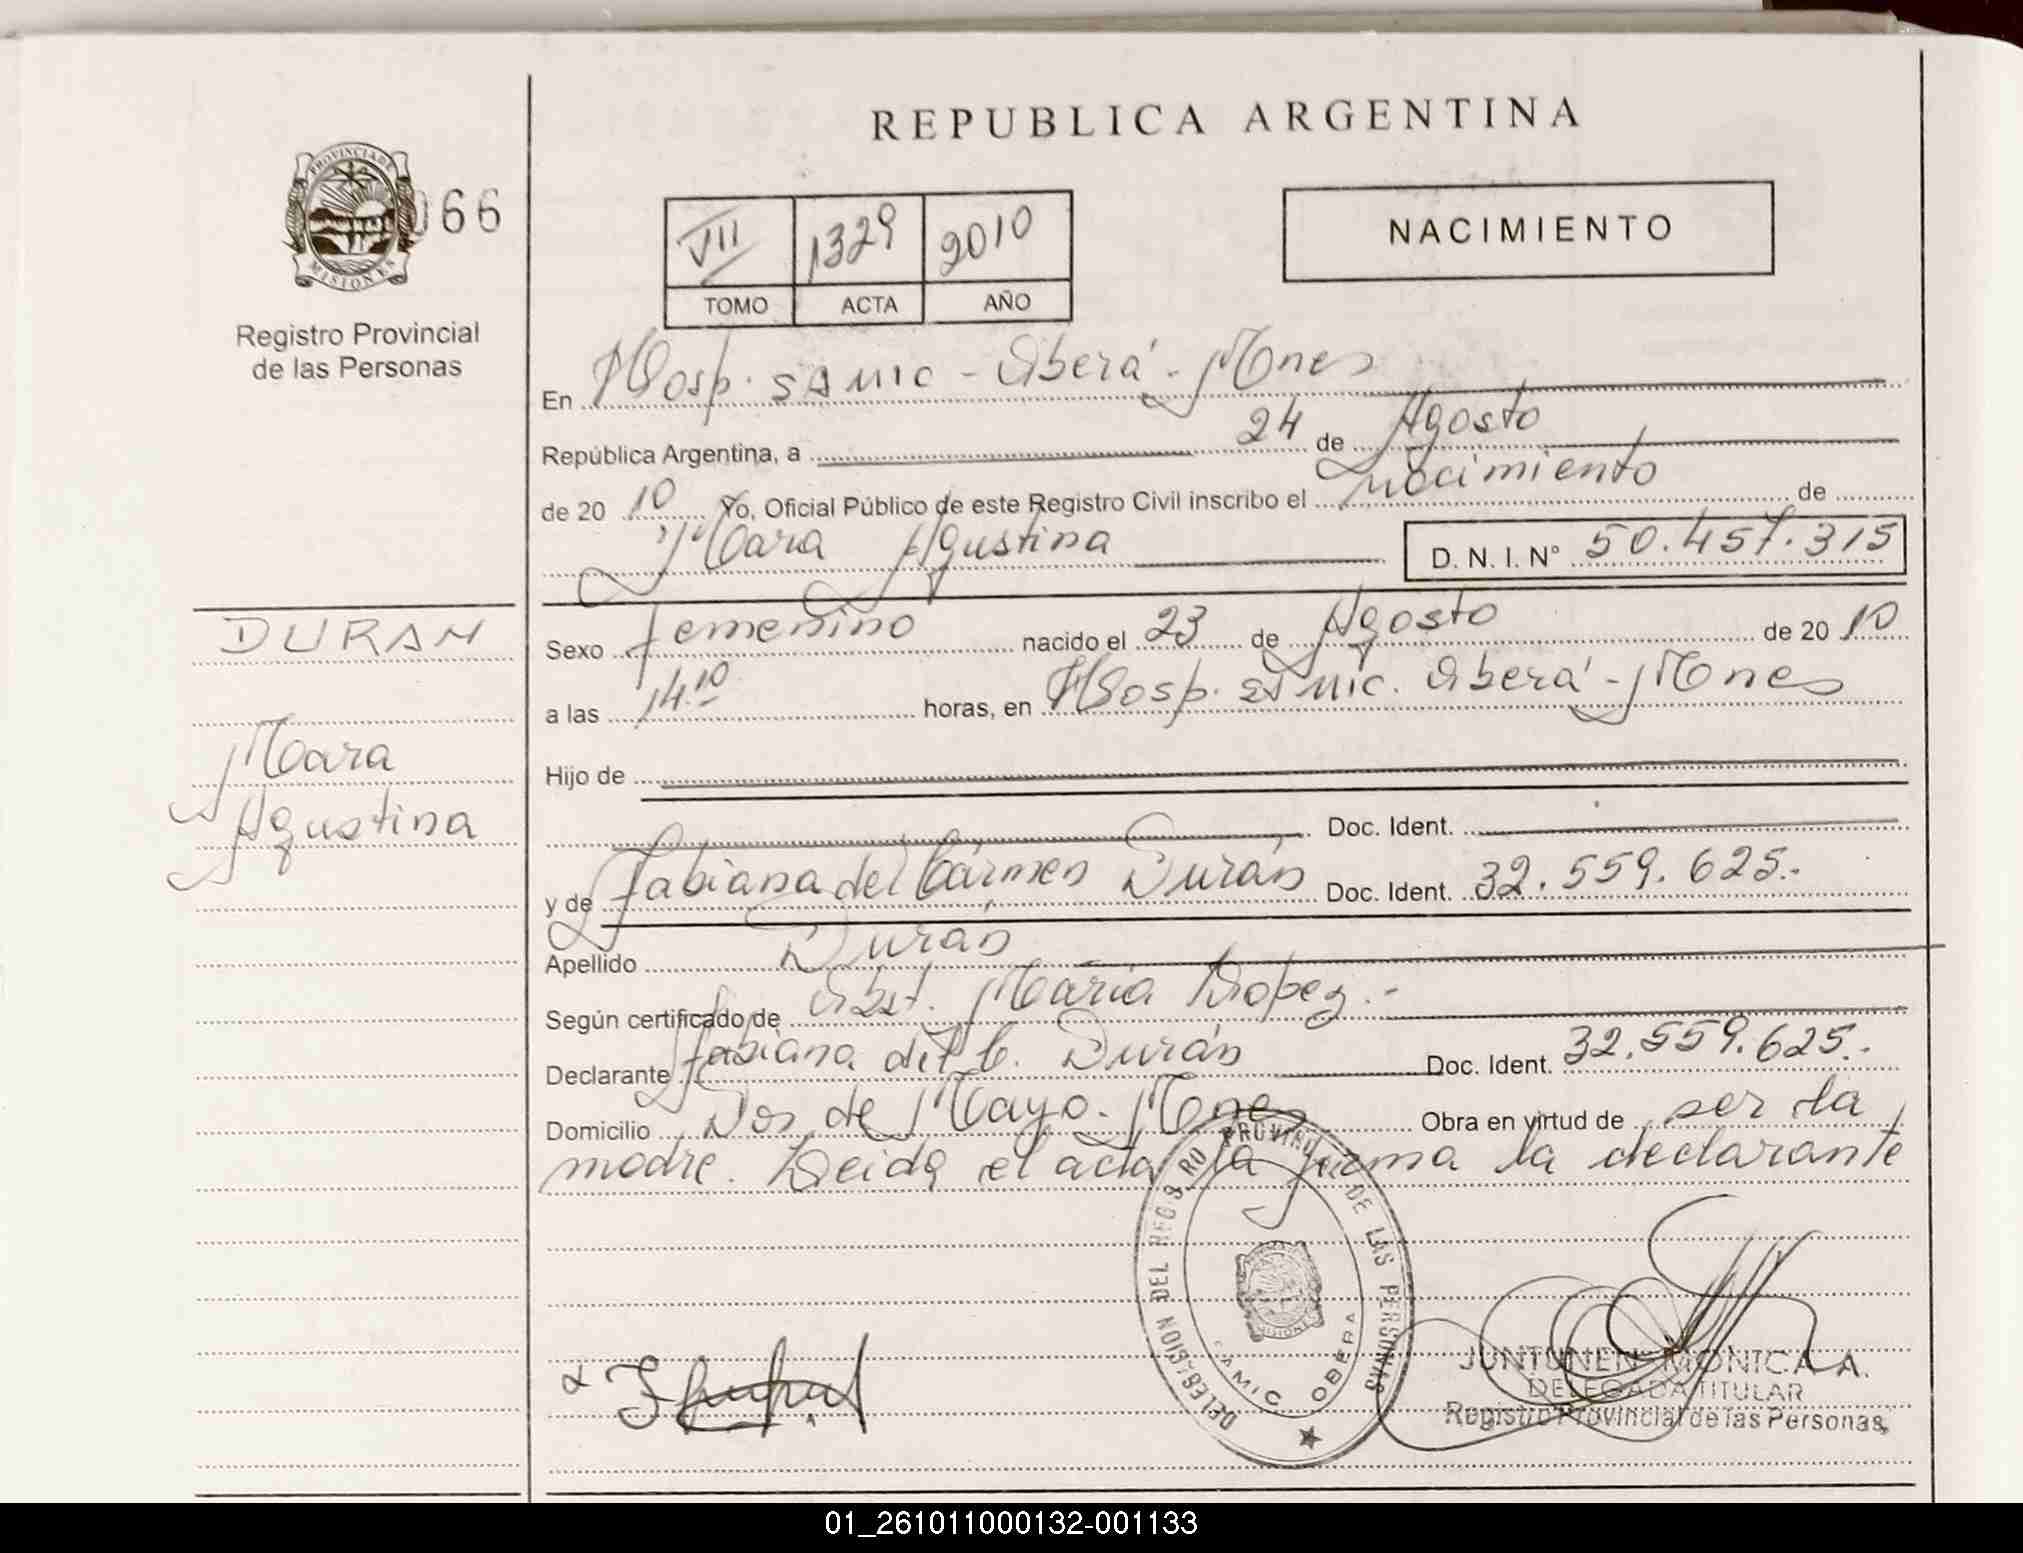 REPUBLICA ARGENTINA
PROVINCIA DE
MISIONES
066
Registro Provincial
de las Personas
VII 1329 2010
TOMO ACTA AÑO
NACIMIENTO
En Hosp. SAMIC - Oberá - Mnes
República Argentina, a 24 de Agosto
de 20 10 Yo, Oficial Público de este Registro Civil inscribo el nacimiento de
Mara Agustina D. N. I. N° 50.457.315
DURAN
Mara
Agustina
Sexo femenino nacido el 23 de Agosto de 20 10
a las 14.10 horas, en Hosp. SAMIC. Oberá - Mnes
Hijo de
Doc. Ident.
y de Fabiana del Cármen Durán Doc. Ident. 32.559.625.-
Apellido Durán
Según certificado de Obst. María Lopez.-
Declarante Fabiana del C. Durán Doc. Ident. 32.559.625.-
Domicilio Dos de Mayo. Mnes Obra en virtud de ser la
madre. Leida el acta la firma la declarante
DELEGACION DEL REGISTRO PROVINCIAL DE LAS PERSONAS
SAMIC OBERA
MISIONES
JUNTUNEN MONICA A.
DELEGADA TITULAR
Registro Provincial de las Personas
01_261011000132-001133